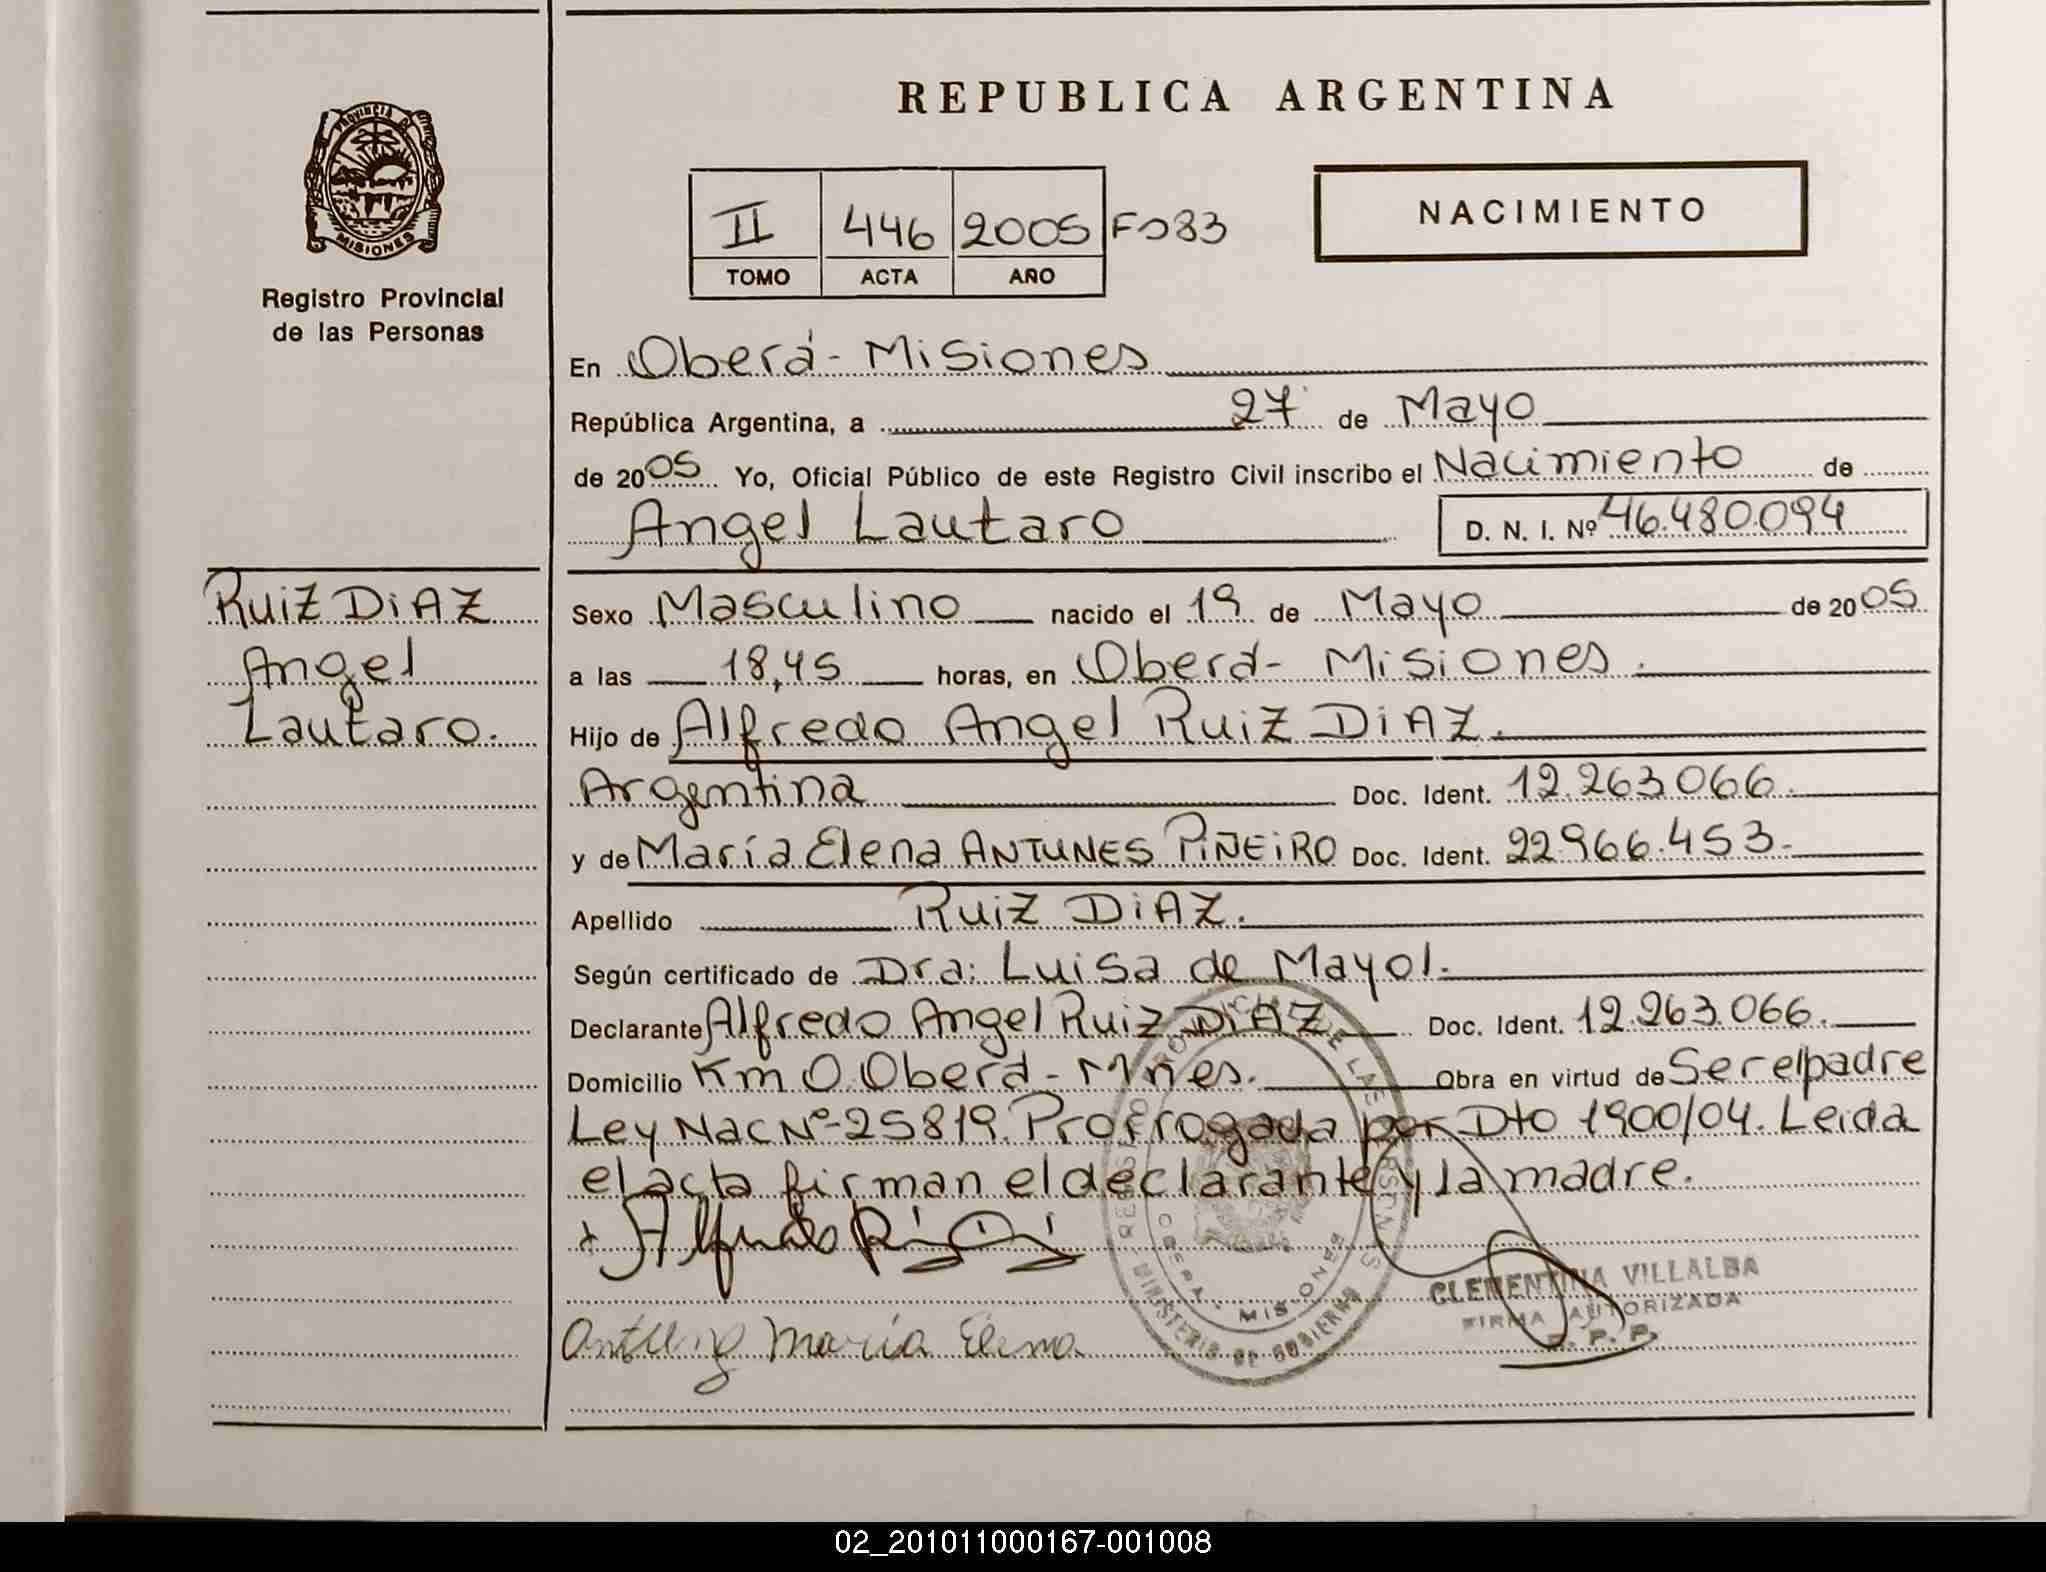 REPUBLICA ARGENTINA
PROVINCIA DE MISIONES
Registro Provincial
de las Personas
NACIMIENTO
II 446 2005 Fº 83
TOMO ACTA AÑO
En Oberá - Misiones
República Argentina, a 27 de Mayo
de 2005 Yo, Oficial Público de este Registro Civil inscribo el Nacimiento de
Angel Lautaro D. N. I. Nº 46.480.094
RUIZ DIAZ
Angel
Lautaro.
Sexo Masculino nacido el 19 de Mayo de 2005
a las 18,45 horas, en Oberá - Misiones.
Hijo de Alfredo Angel RUIZ DIAZ.
Argentina Doc. Ident. 12.263.066.
y de María Elena ANTUNES PIÑEIRO Doc. Ident. 22.966.453.
Apellido RUIZ DIAZ.
Según certificado de Dra: Luisa de Mayol.
Declarante Alfredo Angel RUIZ DIAZ. Doc. Ident. 12.263.066.
Domicilio Km 0 Oberá - Mnes. Obra en virtud de Ser el padre
Ley Nac Nº 25819. Prorrogada por Dto 1900/04. Leida
el acta firman el declarante y la madre.
Antunez María Elena
REGISTRO PROVINCIAL DE LAS PERSONAS
OBERA - MISIONES
MINISTERIO DE GOBIERNO
CLEMENTINA VILLALBA
FIRMA AUTORIZADA
R. P. P.
02_201011000167-001008